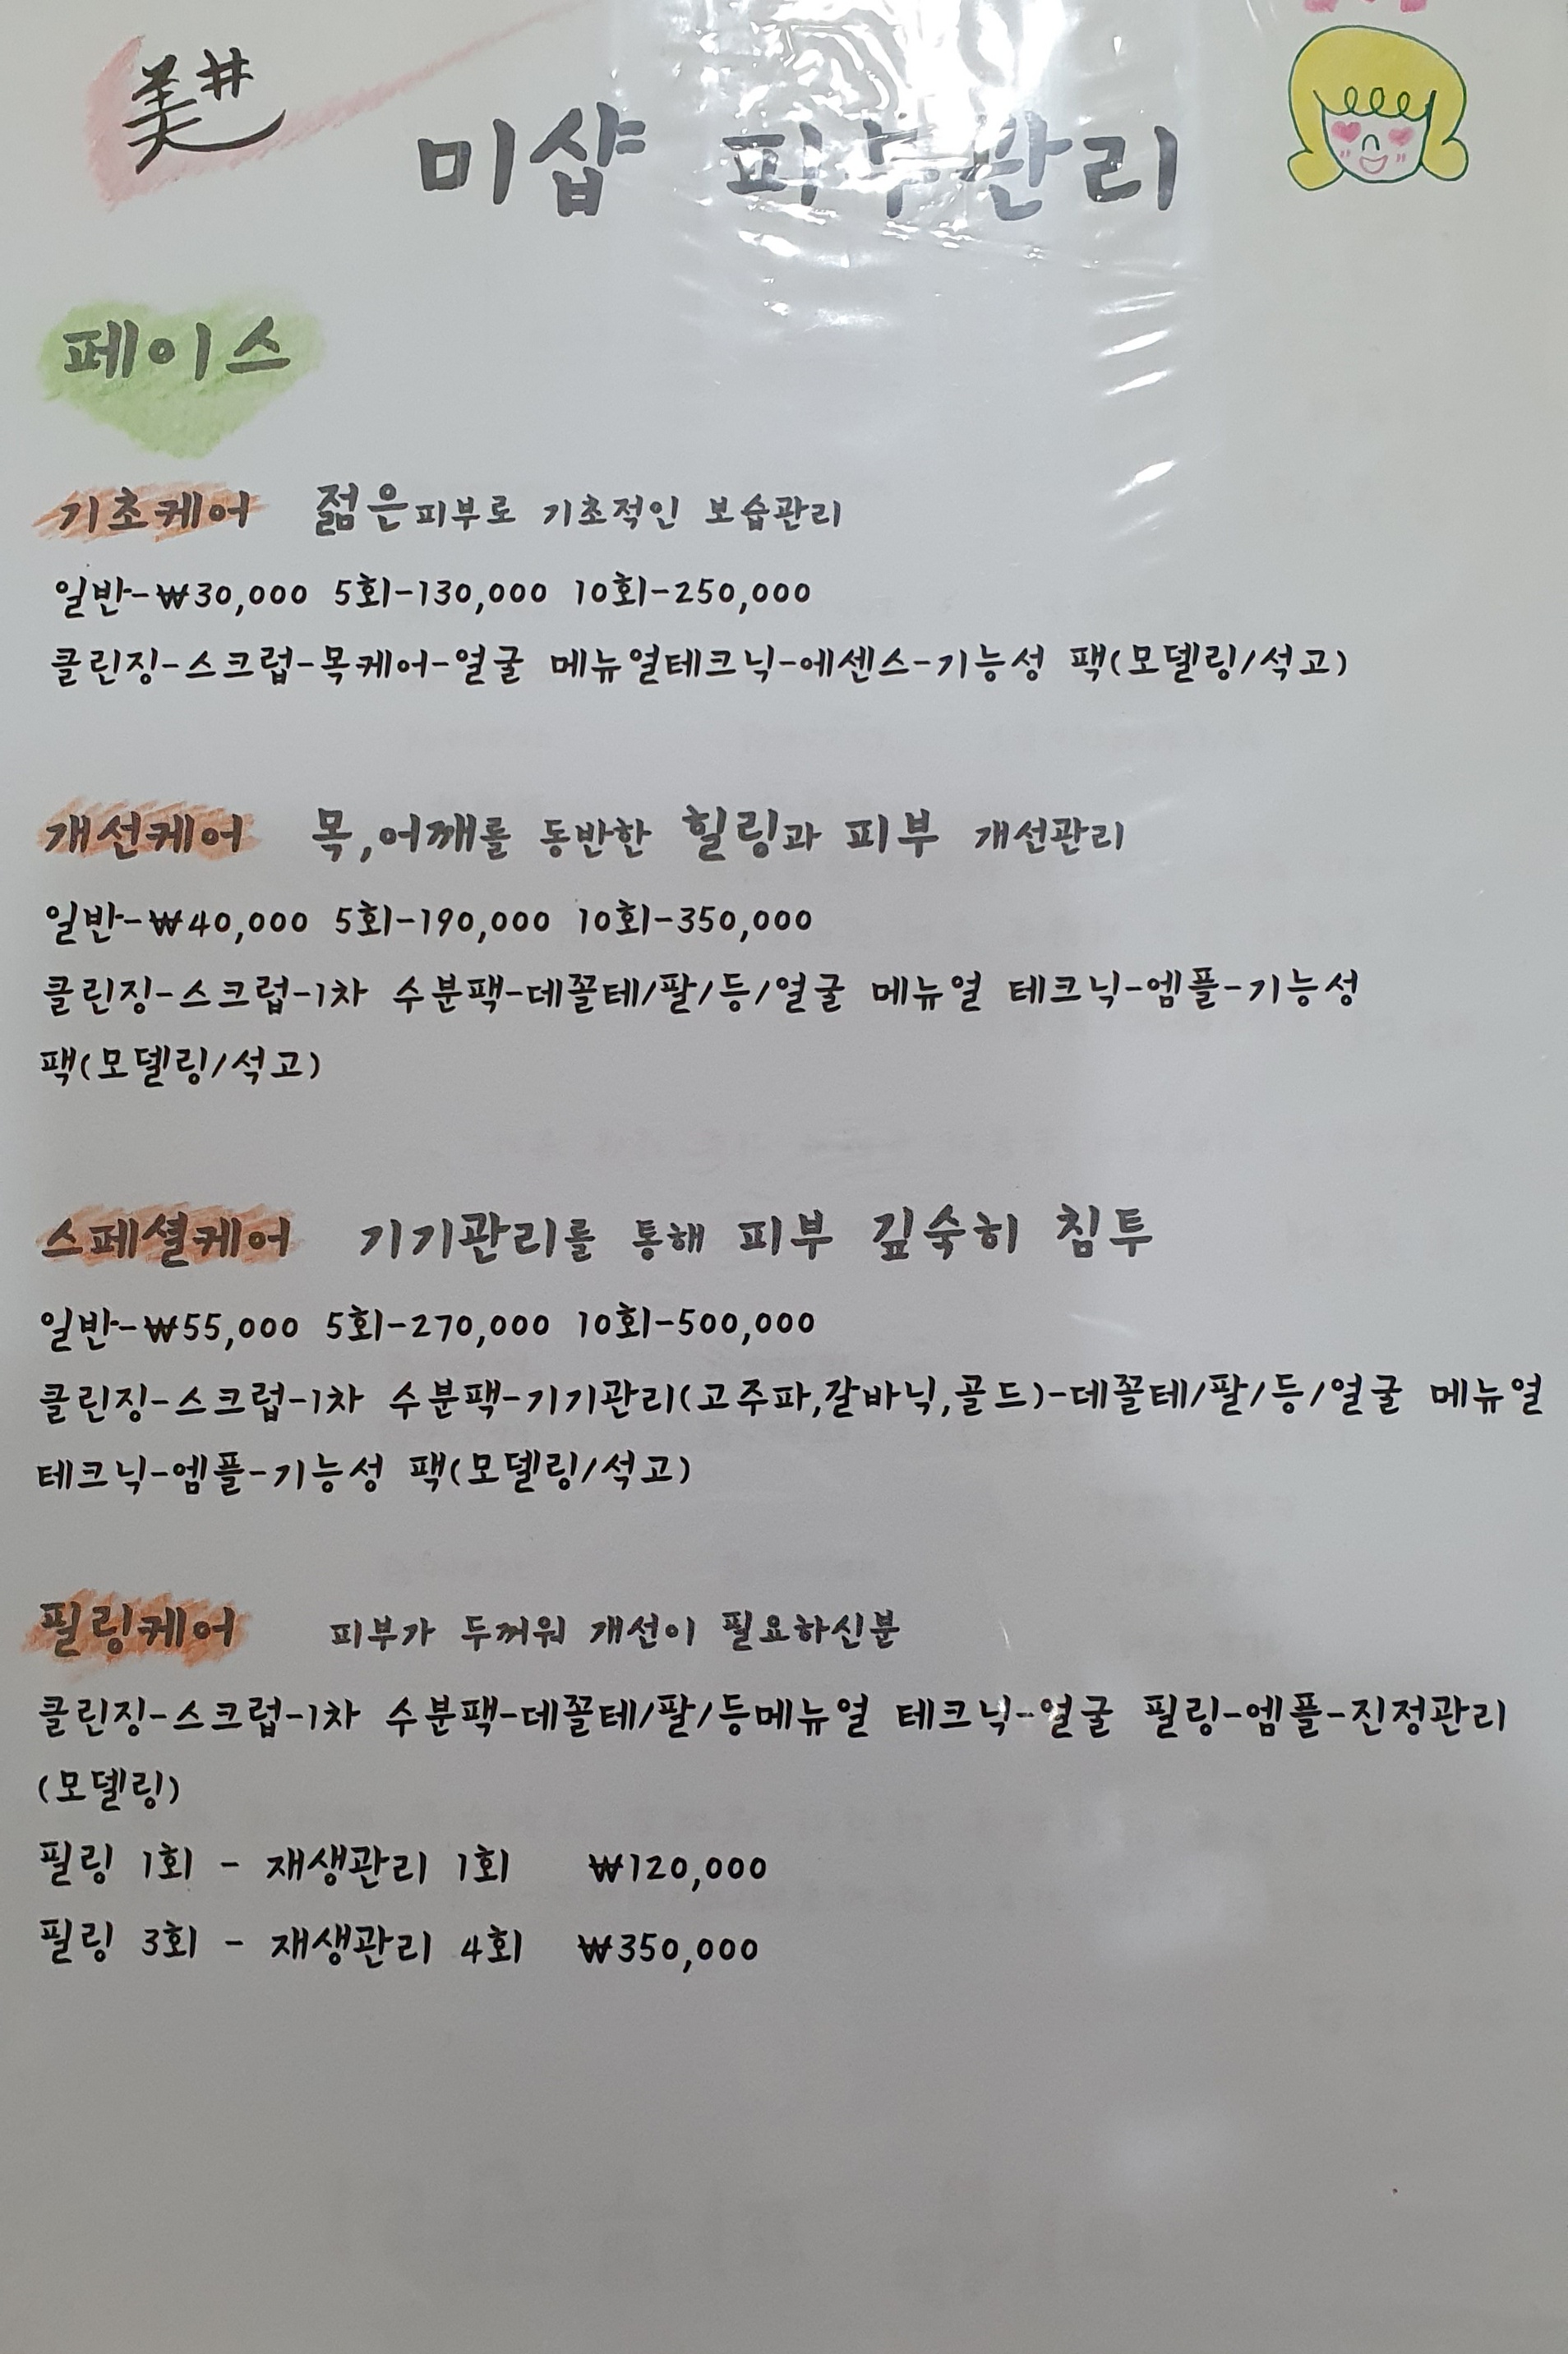 美#
미샵 피부관리
페이스
기초케어 젊은피부로 기초적인 보습관리
일반-₩30,000 5회-130,000 10회-250,000
클린징-스크럽-목케어-얼굴 메뉴얼테크닉-에센스-기능성 팩(모델링/석고)
개선케어 목,어깨를 동반한 힐링과 피부 개선관리
일반-₩40,000 5회-190,000 10회-350,000
클린징-스크럽-1차 수분팩-데꼴테/팔/등/얼굴 메뉴얼 테크닉-엠플-기능성
팩(모델링/석고)
스페셜케어 기기관리를 통해 피부 깊숙히 침투
일반-₩55,000 5회-270,000 10회-500,000
클린징-스크럽-1차 수분팩-기기관리(고주파,갈바닉,골드)-데꼴테/팔/등/얼굴 메뉴얼
테크닉-엠플-기능성 팩(모델링/석고)
필링케어 피부가 두꺼워 개선이 필요하신분
클린징-스크럽-1차 수분팩-데꼴테/팔/등메뉴얼 테크닉-얼굴 필링-엠플-진정관리
(모델링)
필링 1회 - 재생관리 1회 ₩120,000
필링 3회 - 재생관리 4회 ₩350,000